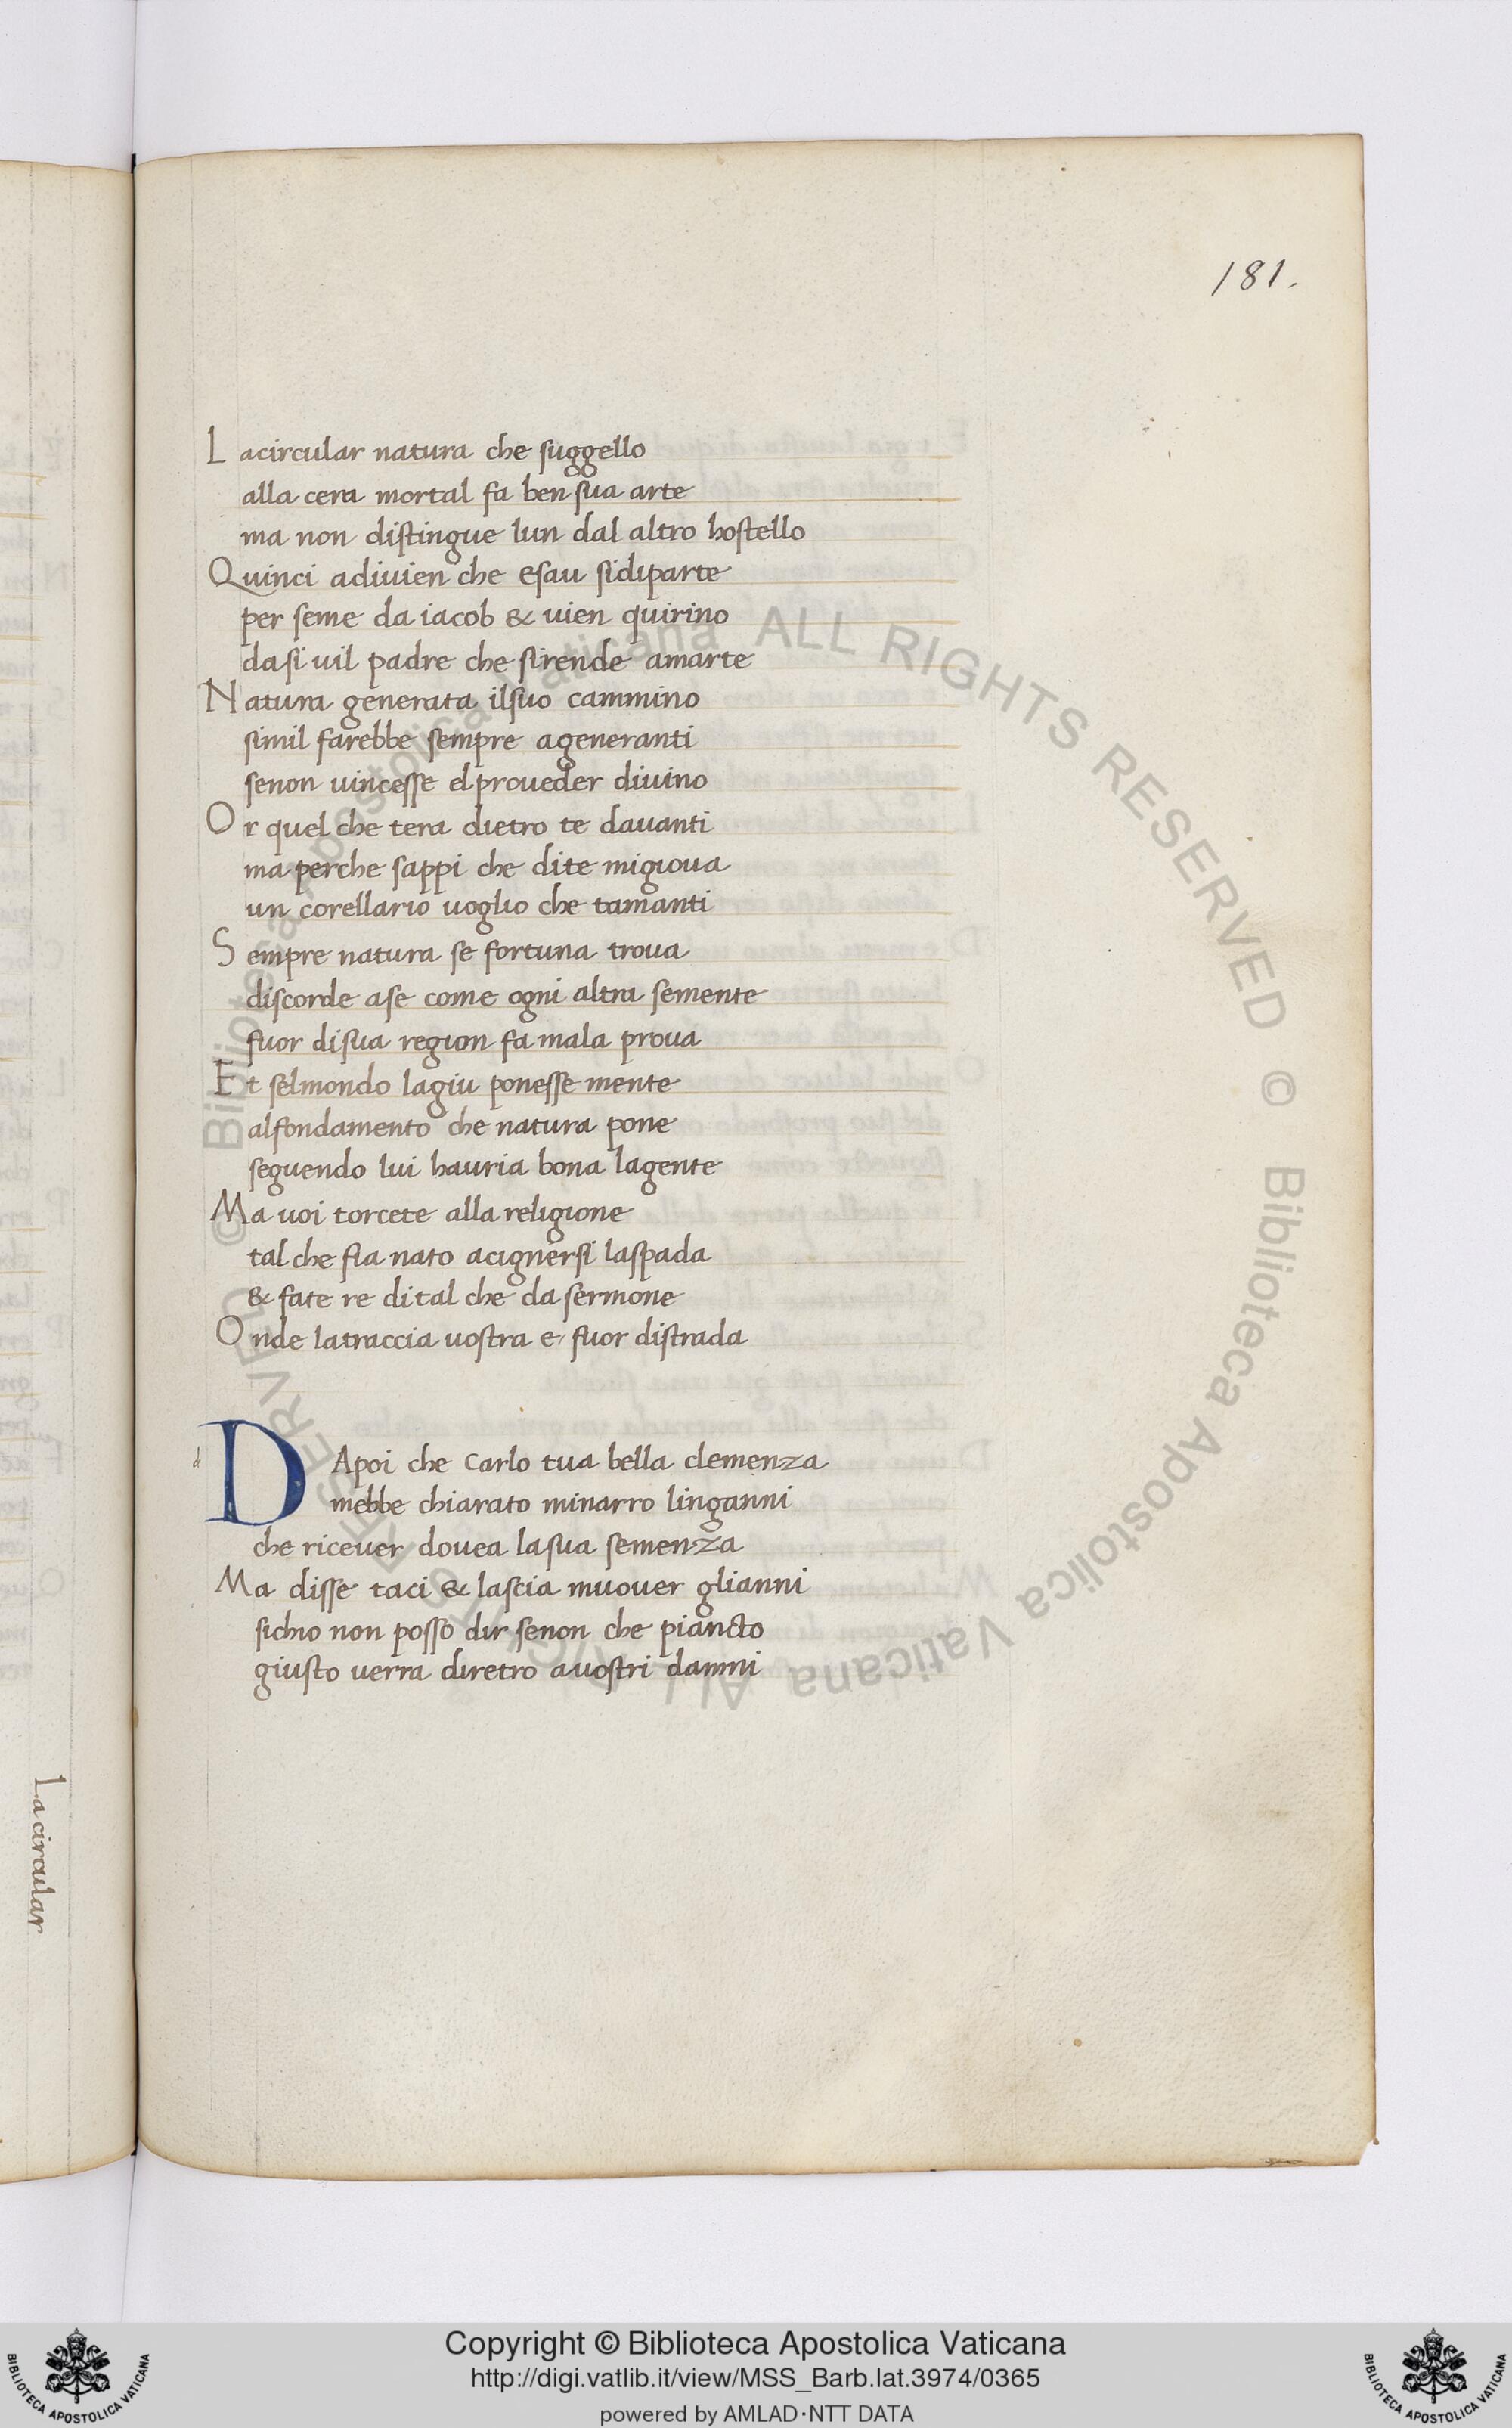 181.
L acircular natura che suggello
alla cera mortal fa ben sua arte
ma non distingue lun dal altro hostello
Quinci adiuien che esau sidiparte
per seme da iacob & uien quirino
dasi uil padre che sirende amarte
N atura generata ilsuo cammino
simil farebbe sempre ageneranti
senon uincesse elproueder diuino
O r quel che tera dietro te dauanti
ma perche sappi che dite migioua
un corellario uoglio che tamanti
S empre natura se fortuna troua
discorde ase come ogni altra semente
fuor disua region fa mala proua
E t selmondo lagiu ponesse mente
alfondamento che natura pone
seguendo lui hauria bona lagente
Ma uoi torcete alla religione
tal che fia nato acignersi laspada
& fate re di tal che da sermone
O nde latraccia uostra e fuor distrada
d
D Apoi che Carlo tua bella clemenza
mebbe chiarato minarro linganni
che riceuer douea lasua semenza
Ma disse taci & lascia muouer glianni
sichio non posso dir senon che piancto
giusto uerra diretro auostri danni
La circular
© Biblioteca Apostolica Vaticana ALL RIGHTS RESERVED © Biblioteca Apostolica Vaticana ALL RIGHTS RESERVED
Copyright © Biblioteca Apostolica Vaticana
http://digi.vatlib.it/view/MSS_Barb.lat.3974/0365
powered by AMLAD·NTT DATA
BIBLIOTECA APOSTOLICA VATICANA
BIBLIOTECA APOSTOLICA VATICANA